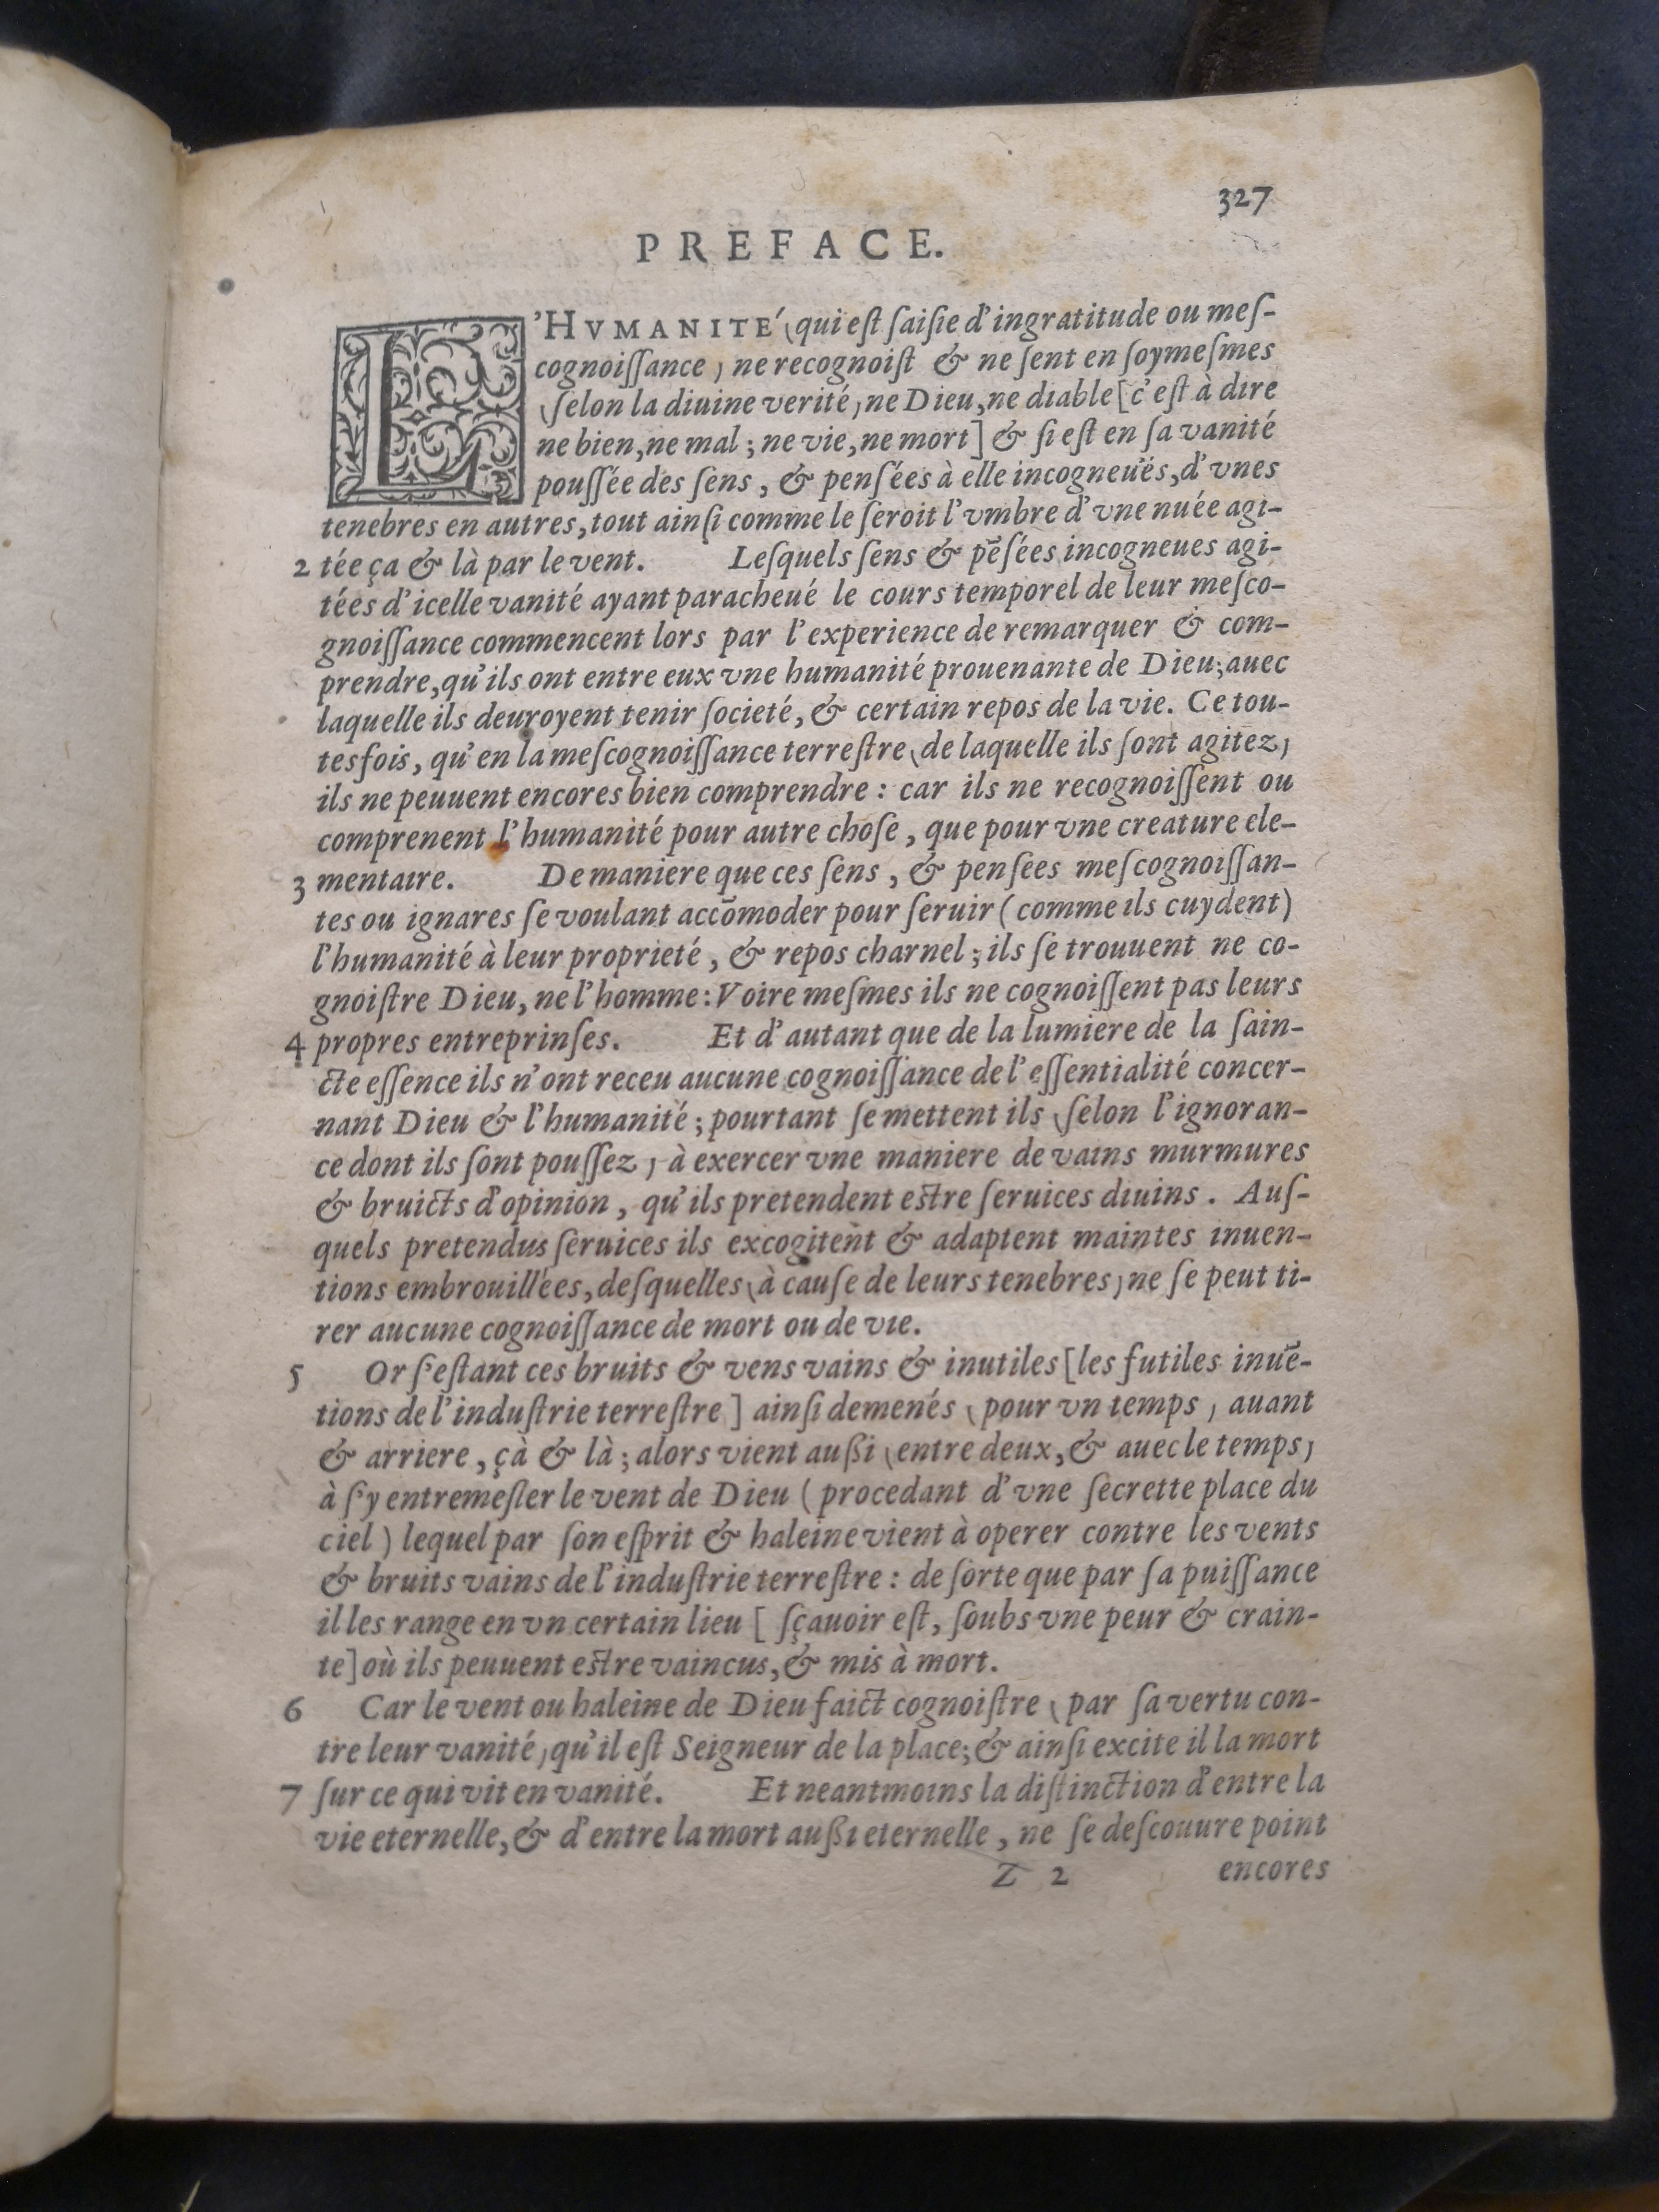 327
PREFACE.
L'HVMANITÉ (qui eſt ſaiſie d'ingratitude ou meſ-
cognoiſſance) ne recognoiſt & ne ſent en ſoymeſmes
(ſelon la diuine verité) ne Dieu, ne diable [c'eſt à dire
ne bien, ne mal; ne vie, ne mort] & ſi eſt en ſa vanité
pouſſée des ſens, & penſées à elle incogneuës, d'vnes
tenebres en autres, tout ainſi comme le ſeroit l'vmbre d'vne nuée agi-
2 tée ça & là par le vent. Leſquels ſens & pẽſées incogneues agi-
tées d'icelle vanité ayant paracheué le cours temporel de leur meſco-
gnoiſſance commencent lors par l'experience de remarquer & com-
prendre, qu'ils ont entre eux vne humanité prouenante de Dieu; auec
laquelle ils deuroyent tenir ſocieté, & certain repos de la vie. Ce tou-
tesfois, qu'en la meſcognoiſſance terreſtre (de laquelle ils ſont agitez)
ils ne peuuent encores bien comprendre : car ils ne recognoiſſent ou
comprenent l'humanité pour autre choſe, que pour vne creature ele-
3 mentaire. De maniere que ces ſens, & penſees meſcognoiſſan-
tes ou ignares ſe voulant accõmoder pour ſeruir (comme ils cuydent)
l'humanité à leur proprieté, & repos charnel; ils ſe trouuent ne co-
gnoiſtre Dieu, ne l'homme: Voire meſmes ils ne cognoiſſent pas leurs
4 propres entreprinſes. Et d'autant que de la lumiere de la ſain-
cte eſſence ils n'ont receu aucune cognoiſſance de l'eſſentialité concer-
nant Dieu & l'humanité; pourtant ſe mettent ils (ſelon l'ignoran-
ce dont ils ſont pouſſez) à exercer vne maniere de vains murmures
& bruicts d'opinion, qu'ils pretendent estre ſeruices diuins. Auſ-
quels pretendus ſeruices ils excogitent & adaptent maintes inuen-
tions embrouillées, deſquelles (à cauſe de leurs tenebres) ne ſe peut ti-
rer aucune cognoiſſance de mort ou de vie.
5 Or ſ'eſtant ces bruits & vens vains & inutiles [les futiles inuẽ-
tions de l'induſtrie terreſtre] ainſi demenés (pour vn temps) auant
& arriere, çà & là; alors vient außi (entre deux, & auec le temps)
à ſ'y entremeſler le vent de Dieu (procedant d'vne ſecrette place du
ciel) lequel par ſon eſprit & haleine vient à operer contre les vents
& bruits vains de l'induſtrie terreſtre : de ſorte que par ſa puiſſance
il les range en vn certain lieu [ſçauoir eſt, ſoubs vne peur & crain-
te] où ils peuuent estre vaincus, & mis à mort.
6 Car le vent ou haleine de Dieu faict cognoiſtre (par ſa vertu con-
tre leur vanité) qu'il eſt Seigneur de la place; & ainſi excite il la mort
7 ſur ce qui vit en vanité. Et neantmoins la diſtinction d'entre la
vie eternelle, & d'entre la mort außi eternelle, ne ſe deſcouure point
Z 2 encores